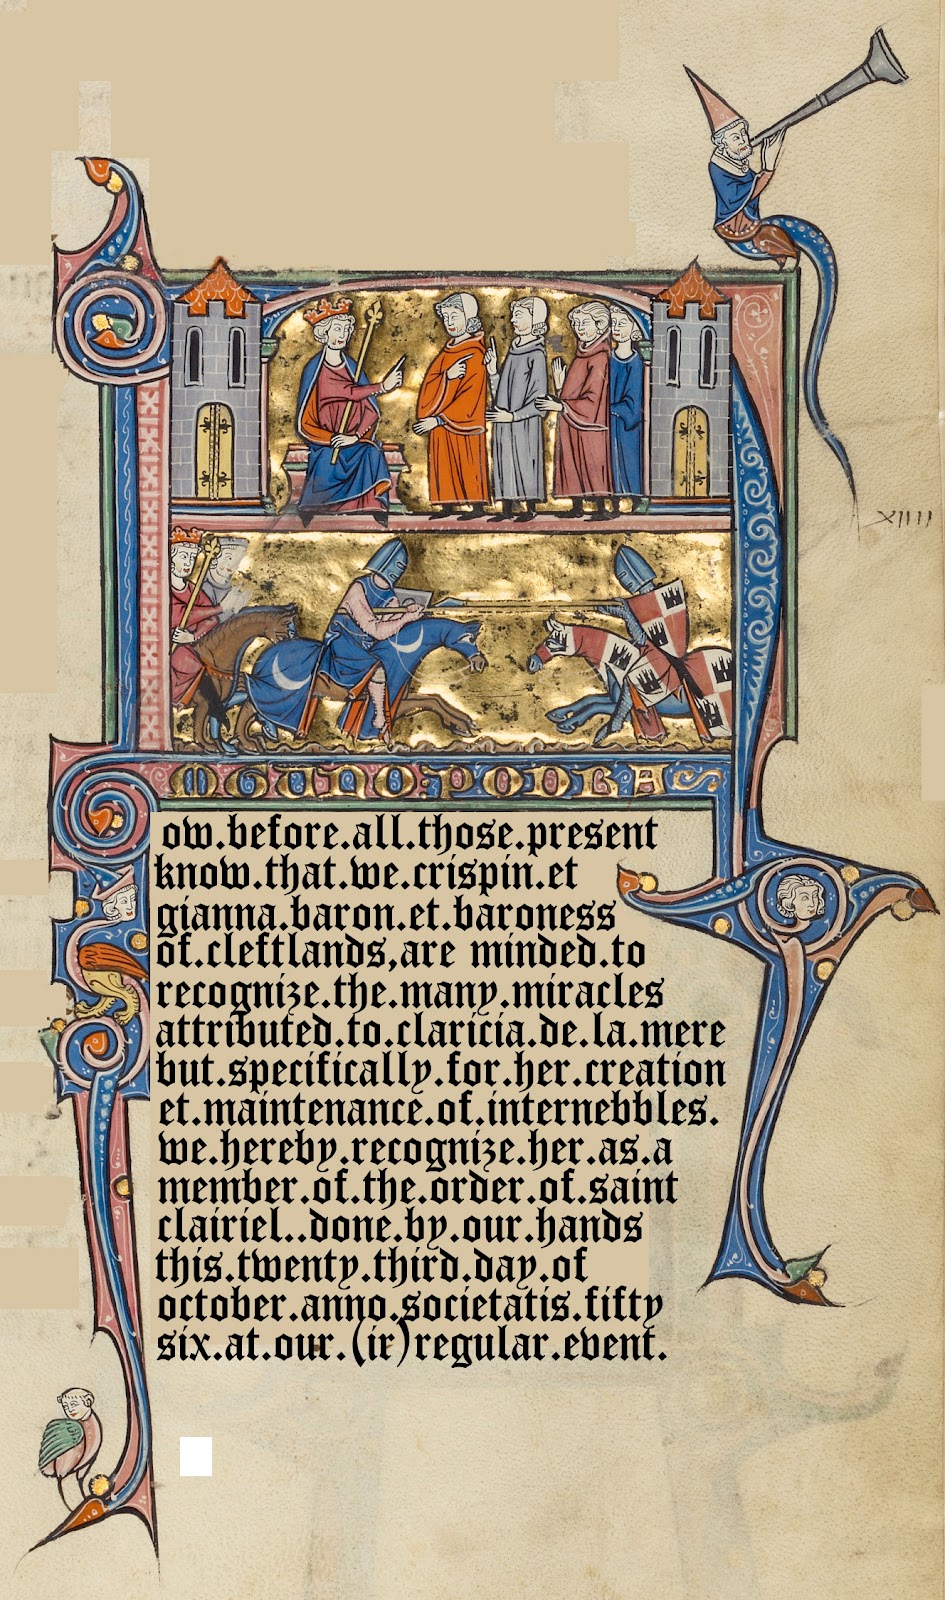 xiiii
ow.before.all.those.present
know.that.we.crispin.et
gianna.baron.et.baroness
of.cleftlands,are minded.to
recognize.the.many.miracles
attributed.to.claricia.de.la.mere
but.specifically.for.her.creation
et.maintenance.of.internebbles.
we.hereby.recognize.her.as.a
member.of.the.order.of.saint
clairiel..done.by.our.hands
this.twenty.third.day.of
october.anno.societatis.fifty
six.at.our.(ir)regular.event.